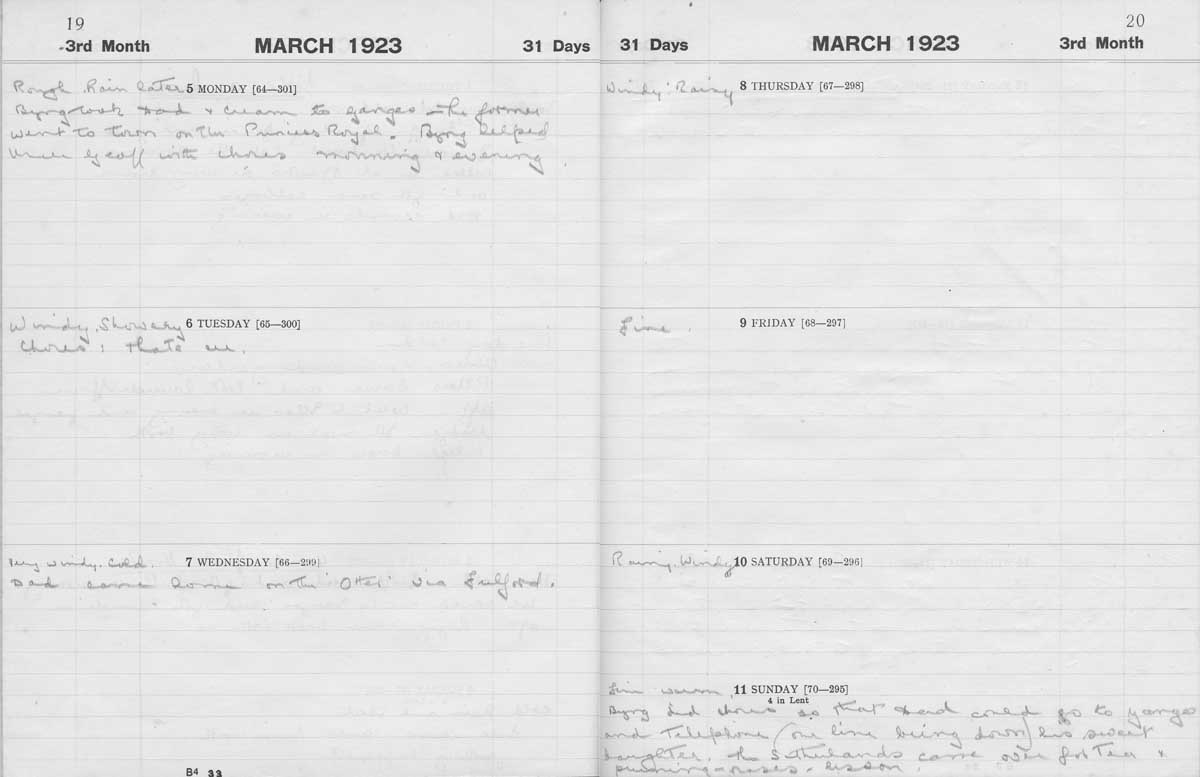 19
3rd Month MARCH 1923 31 Days
Rough. Rain later 5 MONDAY [64—301]
Byng took Dad & cream to Ganges – the former
went to town on the Princess Royal. Byng helped
Uncle Geoff with chores morning & evening
Windy. Showery 6 TUESDAY [65—300]
Chores; thats all.
Very windy. Cold. 7 WEDNESDAY [66—299]
Dad came home on the 'Otter' via Fulford.
B4 33
20
31 Days MARCH 1923 3rd Month
Windy Rainy 8 THURSDAY [67—298]
Fine. 9 FRIDAY [68—297]
Rainy. Windy 10 SATURDAY [69—296]
Fine warm 11 SUNDAY [70—295]
4 in Lent
Byng did chores so that Dad could go to Ganges
and Telephone (our line being down) his sweet
daughter. The Sutherlands came over for Tea &
pruning-roses-lesson.